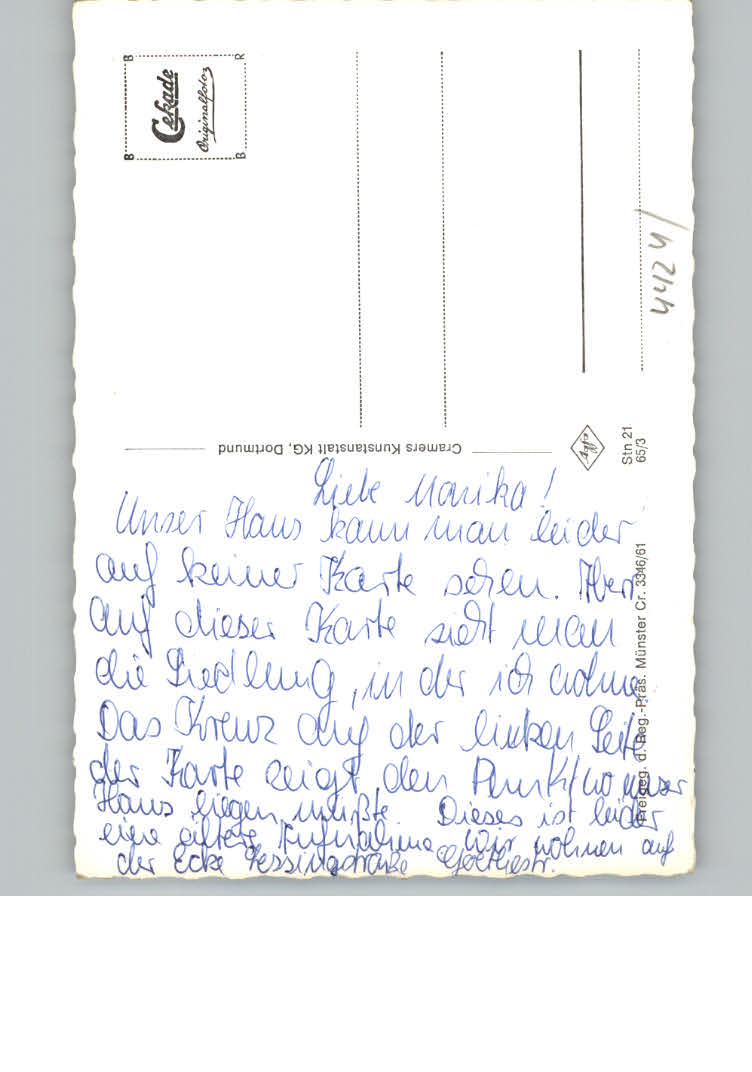 B R
B B
Cekade
Originalfotos
4424/
Cramers Kunstanstalt KG, Dortmund
Stn 21
65/3
Freigeg. d. Reg.-Präs. Münster Cr. 3346/61
Liebe Monika!
Unser Haus kann man leider
auf keiner Karte sehen. Aber
auf dieser Karte sieht man
die Siedlung, in der ich wohne.
Das Kreuz auf der linken Seite
der Karte zeigt den Punkt, wo unser
Haus liegen müßte. Dieses ist leider
eine ältere Aufnahme. Wir wohnen auf
der Ecke Lessingstraße Goethestr.